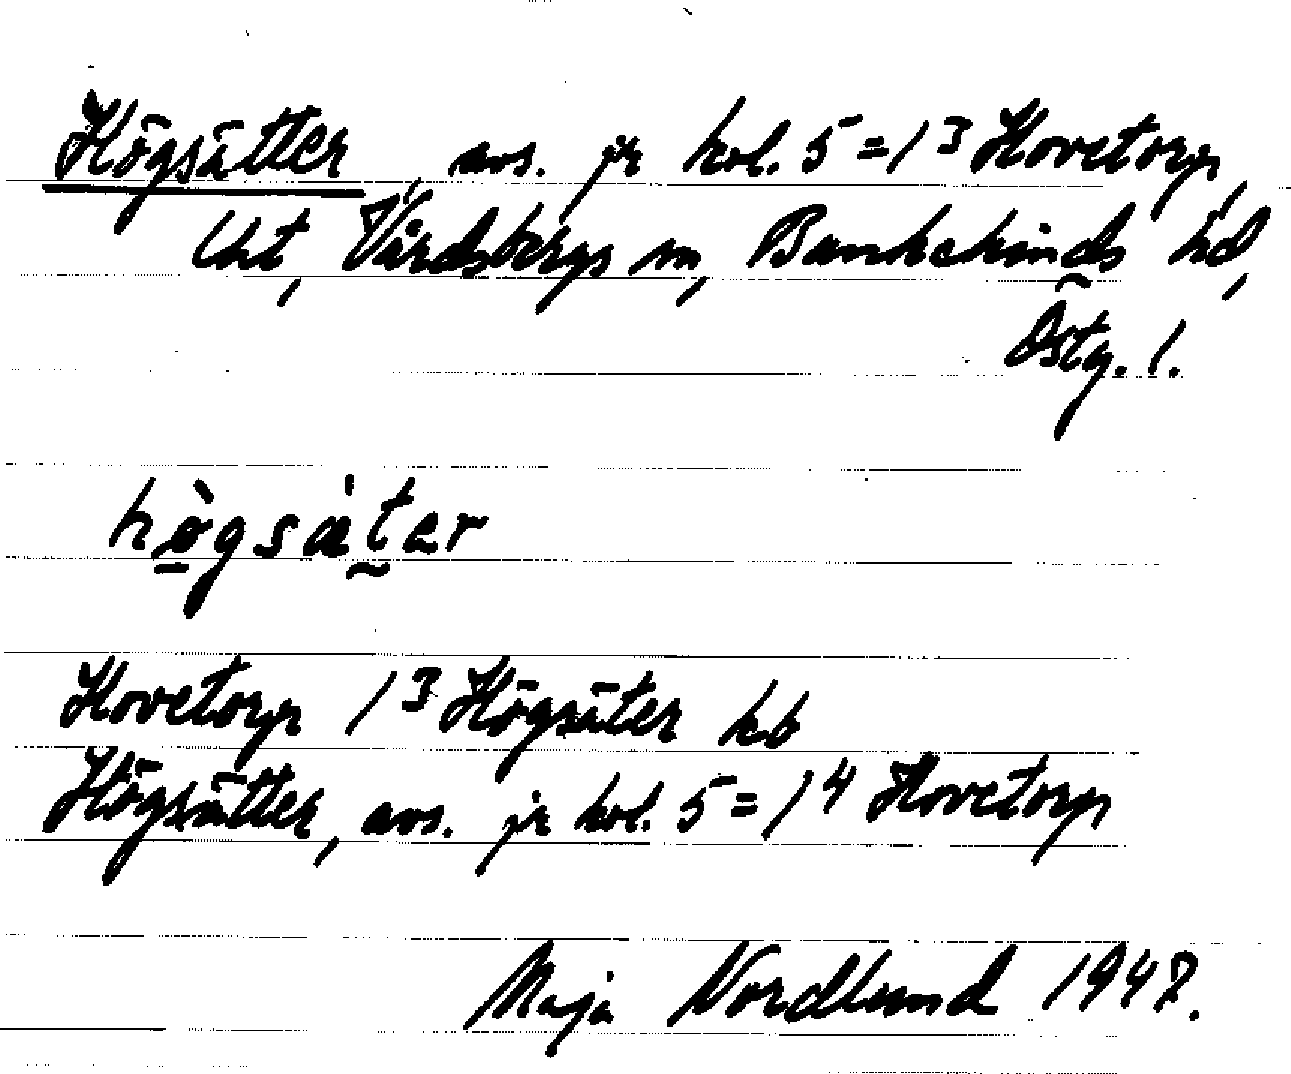 Högsätter, avs. jr kol. 5 = 1³ Hovetorp,
Uht, Vårdsbergs sn, Bankekinds hd,
Östg. l.
hø̀gsæ̀ter
Hovetorp 1³ Högsäter kb
Högsätter, avs. jr kol. 5 = 1⁴ Hovetorp
Maja Nordlund 1947.